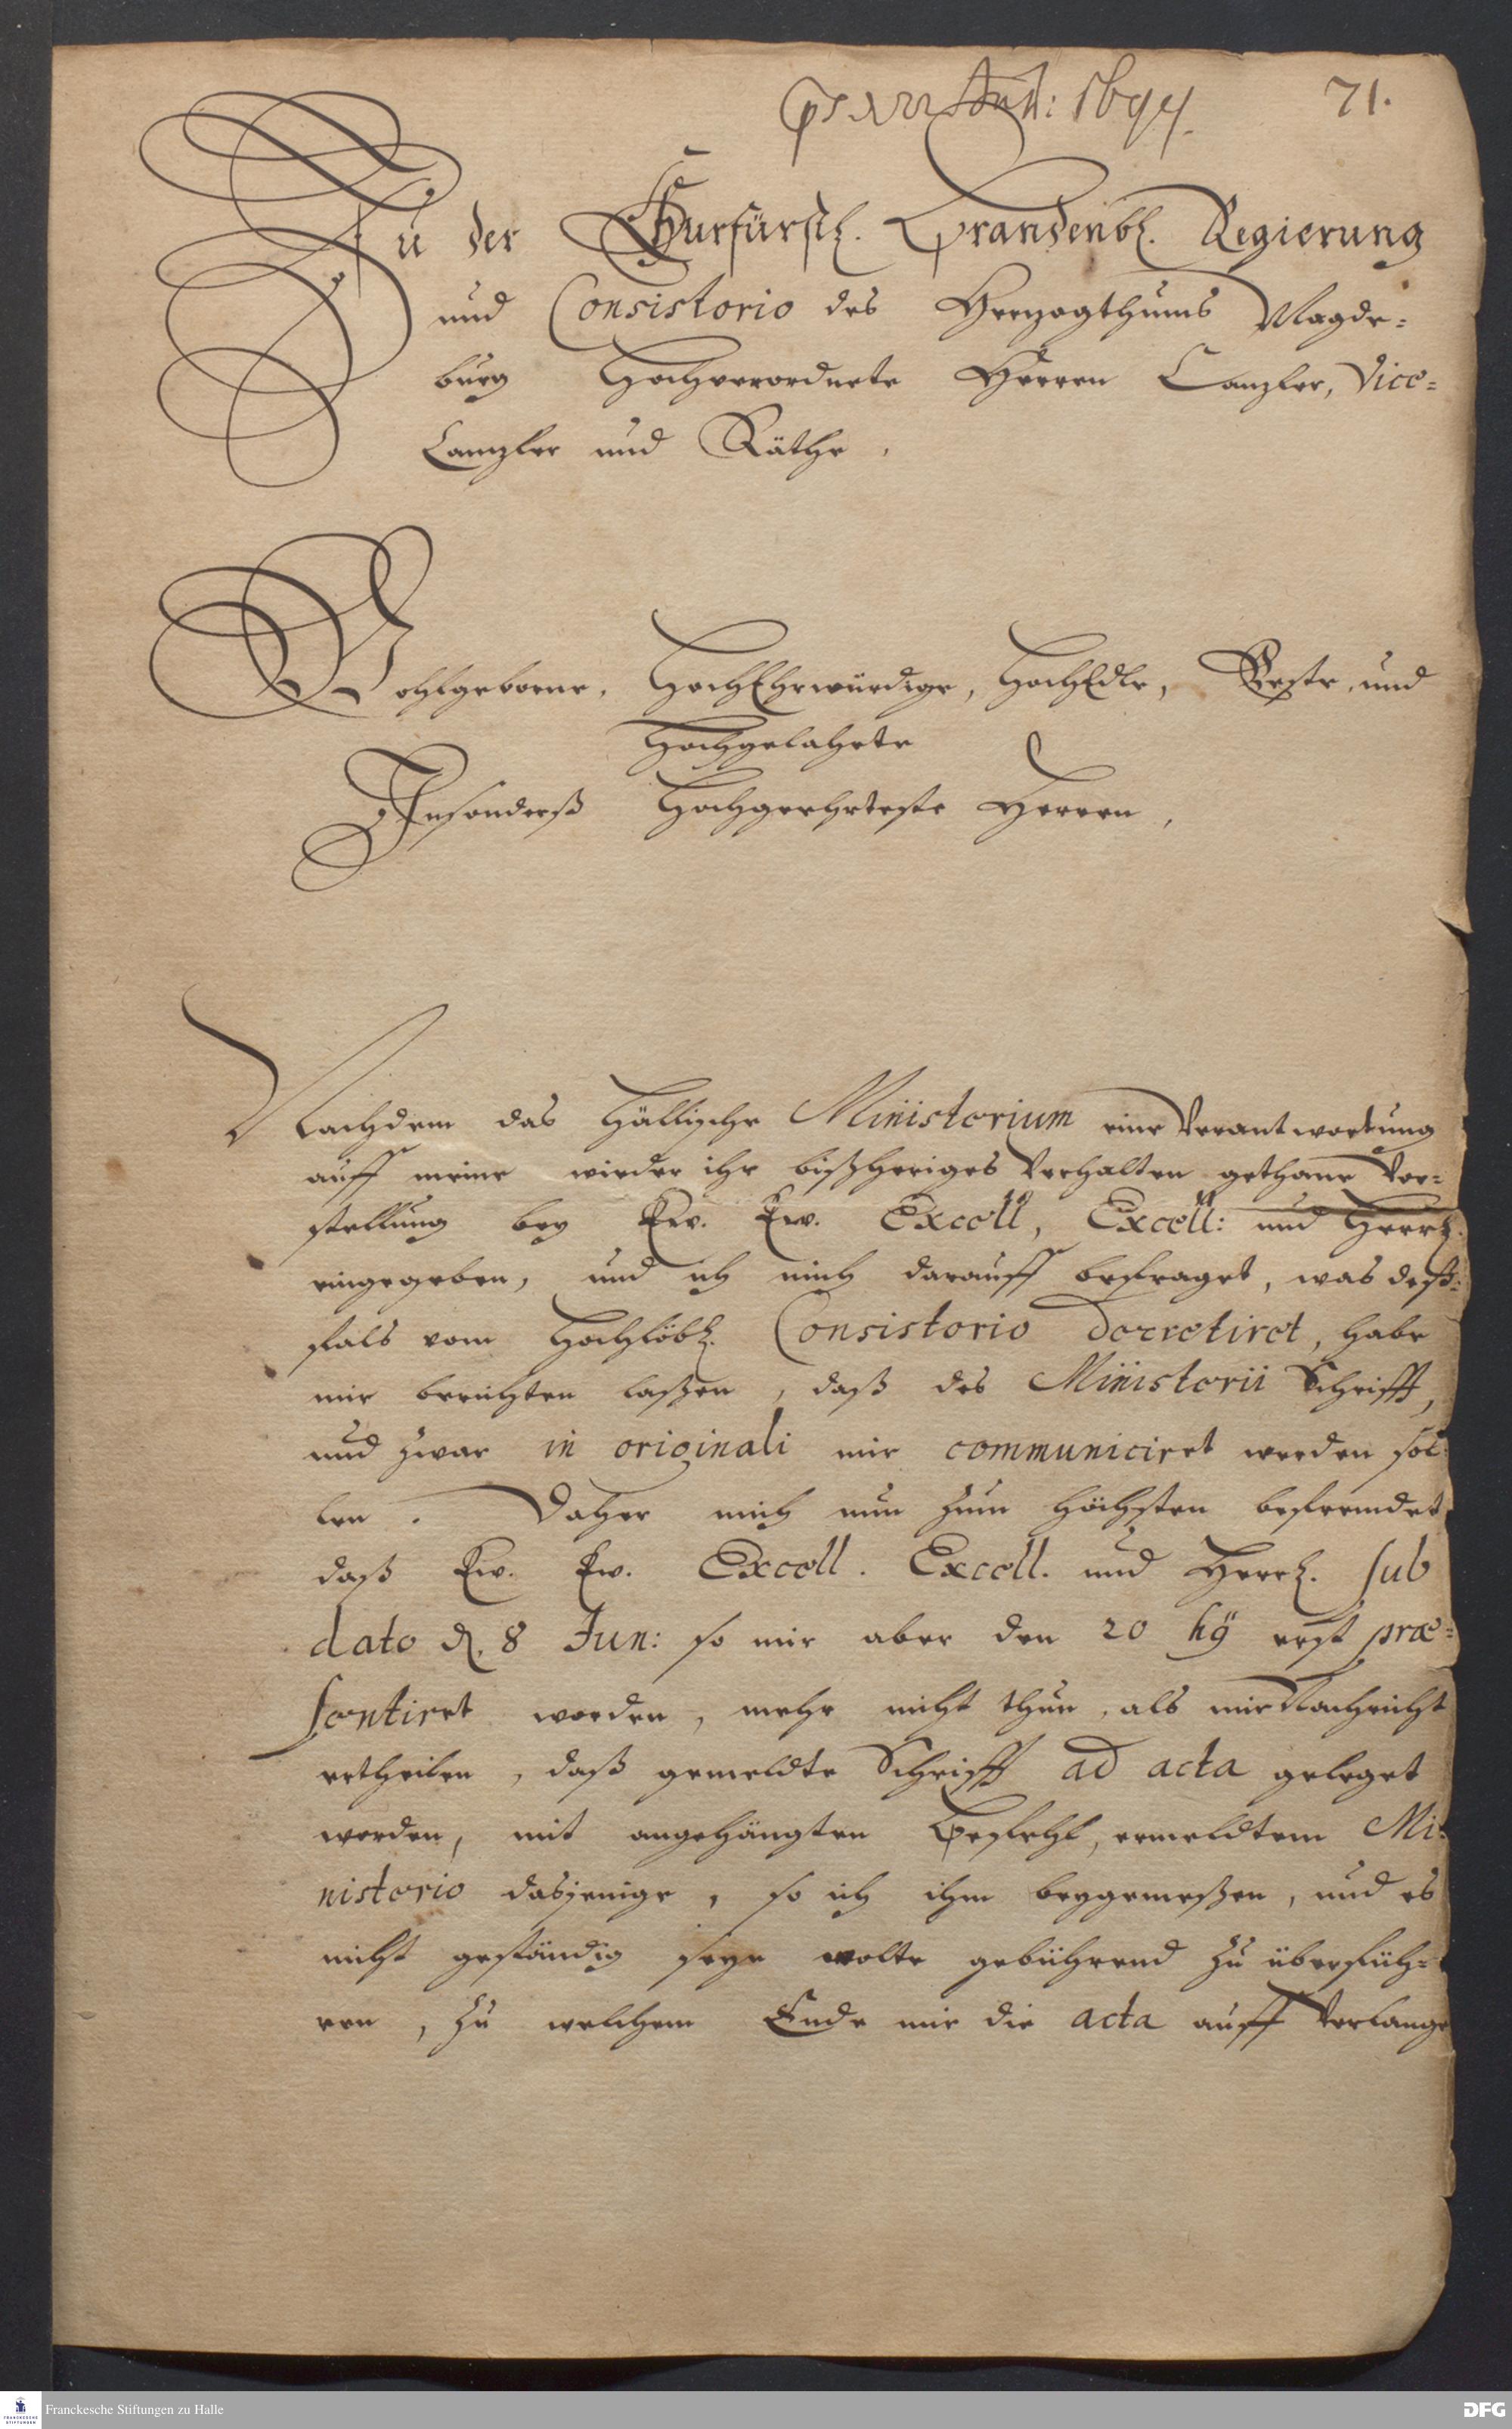 1699. 71.
Zu der Churfürstl. Brandenbl. Regierung
und Consistorio des Hertzogthums Magde-
burg Hochverordnete Herren Canzler, Vice-
Canzler und Räthe,
Wohlgeborne, HochEhrwürdige, HochEdle, Veste, und
Hochgelahrte
Insonderß Hochgeehrteste Herren,
Nachdem das Hällische Ministerium eine Verantwortung
auff meine wieder ihr bißheriges Verhalten gethane Vor-
stellung bey Ew. Ew. Excell, Excell: und Herrl.
eingegeben, und ich mich darauff befraget, was deß-
fals vom Hochlöbl. Consistorio decretiret, habe
mir berichten laßen, daß des Ministerii Schrifft,
und zwar in originali mir communiciret werden sol-
len. Daher mich nun zum höchsten befremdet
daß Ew. Ew. Excell. Excell. und Herrl. sub
dato d. 8 Jun: so mir aber den 20 hỹ erst præ-
sentiret worden, mehr nicht thun, als mir Nachricht
ertheilen, daß gemeldte Schrifft ad acta geleget
worden, mit angehängten Befehl, ermeldtem Mi-
nisterio dasjenige, so ich ihm beygemeßen, und es
nicht geständig seyn wolte gebührend zu überfüh-
ren, zu welchem Ende mir die acta auff Verlangen
Franckesche Stiftungen zu Halle
DFG